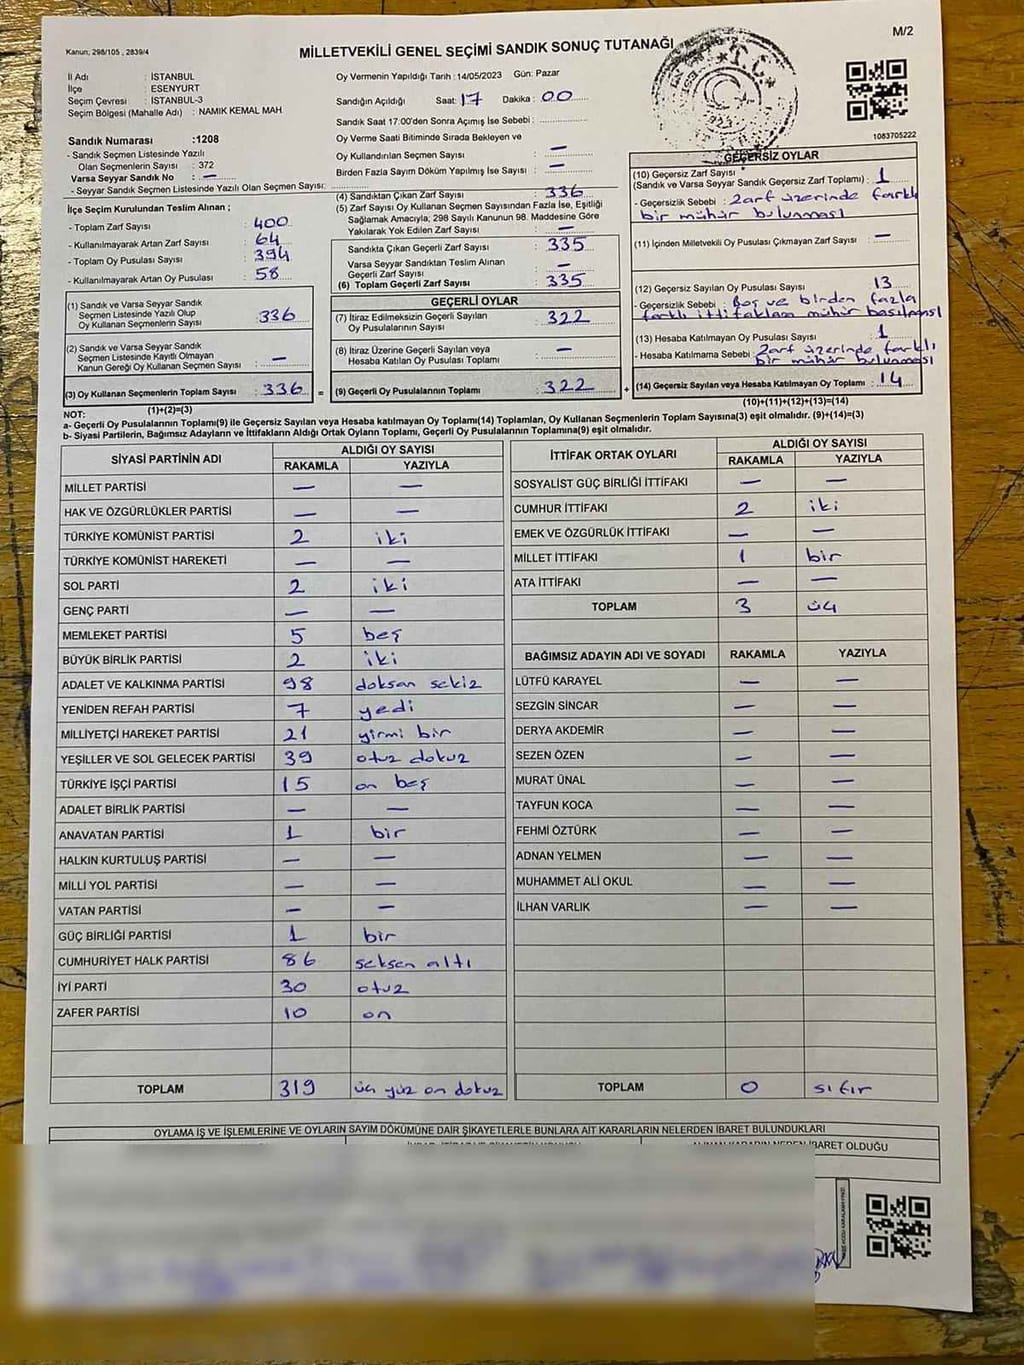 Kanun; 298/105 , 2839/4
MİLLETVEKİLİ GENEL SEÇİMİ SANDIK SONUÇ TUTANAĞI
M/2
İl Adı : İSTANBUL
İlçe : ESENYURT
Seçim Çevresi : İSTANBUL-3
Seçim Bölgesi (Mahalle Adı) : NAMIK KEMAL MAH
Sandık Numarası :1208
- Sandık Seçmen Listesinde Yazılı
Olan Seçmenlerin Sayısı : 372
Varsa Seyyar Sandık No : —
- Seyyar Sandık Seçmen Listesinde Yazılı Olan Seçmen Sayısı:
Oy Vermenin Yapıldığı Tarih : 14/05/2023 Gün: Pazar
Sandığın Açıldığı Saat: 17 Dakika : 00
Sandık Saat 17:00'den Sonra Açımış İse Sebebi :
Oy Verme Saati Bitiminde Sırada Bekleyen ve
Oy Kullandırılan Seçmen Sayısı : —
Birden Fazla Sayım Döküm Yapılmış İse Sayısı : —
1083705222
İlçe Seçim Kurulundan Teslim Alınan ;
- Toplam Zarf Sayısı : 400
- Kullanılmayarak Artan Zarf Sayısı : 64
- Toplam Oy Pusulası Sayısı : 394
- Kullanılmayarak Artan Oy Pusulası : 58
(1) Sandık ve Varsa Seyyar Sandık
Seçmen Listesinde Yazılı Olup
Oy Kullanan Seçmenlerin Sayısı : 336
(2) Sandık ve Varsa Seyyar Sandık
Seçmen Listesinde Kayıtlı Olmayan
Kanun Gereği Oy Kullanan Seçmen Sayısı : —
(3) Oy Kullanan Seçmenlerin Toplam Sayısı : 336 =
(1)+(2)=(3)
(4) Sandıktan Çıkan Zarf Sayısı : 336
(5) Zarf Sayısı Oy Kullanan Seçmen Sayısından Fazla İse, Eşitliği
Sağlamak Amacıyla; 298 Sayılı Kanunun 98. Maddesine Göre
Yakılarak Yok Edilen Zarf Sayısı : —
Sandıkta Çıkan Geçerli Zarf Sayısı : 335
Varsa Seyyar Sandıktan Teslim Alınan
Geçerli Zarf Sayısı : —
(6) Toplam Geçerli Zarf Sayısı : 335
GEÇERLİ OYLAR
(7) İtiraz Edilmeksizin Geçerli Sayılan
Oy Pusulalarının Sayısı : 322
(8) İtiraz Üzerine Geçerli Sayılan veya
Hesaba Katılan Oy Pusulası Toplamı : —
(9) Geçerli Oy Pusulalarının Toplamı : 322 +
GEÇERSİZ OYLAR
(10) Geçersiz Zarf Sayısı
(Sandık ve Varsa Seyyar Sandık Geçersiz Zarf Toplamı) : 1
- Geçersizlik Sebebi : zarf üzerinde farklı
bir mühür bulunması
(11) İçinden Milletvekili Oy Pusulası Çıkmayan Zarf Sayısı : —
(12) Geçersiz Sayılan Oy Pusulası Sayısı : 13
- Geçersizlik Sebebi : Boş ve birden fazla
farklı ittifaklara mühür basılması
(13) Hesaba Katılmayan Oy Pusulası Sayısı : 1
- Hesaba Katılmama Sebebi : zarf üzerinde farklı
bir mühür bulunması
(14) Geçersiz Sayılan veya Hesaba Katılmayan Oy Toplamı : 14
(10)+(11)+(12)+(13)=(14)
NOT:
a- Geçerli Oy Pusulaları Toplamı(9) ile Geçersiz Sayılan veya Hesaba katılmayan Oy Toplamı(14) Toplamları, Oy Kullanan Seçmenlerin Toplam Sayısına(3) eşit olmalıdır. (9)+(14)=(3)
b- Siyasi Partilerin, Bağımsız Adayların ve İttifakların Aldığı Ortak Oyların Toplamı, Geçerli Oy Pusulalarının Toplamına(9) eşit olmalıdır.
SİYASİ PARTİNİN ADI ALDIĞI OY SAYISI
RAKAMLA YAZIYLA
MİLLET PARTİSİ — —
HAK VE ÖZGÜRLÜKLER PARTİSİ — —
TÜRKİYE KOMÜNİST PARTİSİ 2 iki
TÜRKİYE KOMÜNİST HAREKETİ — —
SOL PARTİ 2 iki
GENÇ PARTİ — —
MEMLEKET PARTİSİ 5 beş
BÜYÜK BİRLİK PARTİSİ 2 iki
ADALET VE KALKINMA PARTİSİ 98 doksan sekiz
YENİDEN REFAH PARTİSİ 7 yedi
MİLLİYETÇİ HAREKET PARTİSİ 21 yirmi bir
YEŞİLLER VE SOL GELECEK PARTİSİ 39 otuz dokuz
TÜRKİYE İŞÇİ PARTİSİ 15 on beş
ADALET BİRLİK PARTİSİ — —
ANAVATAN PARTİSİ 1 bir
HALKIN KURTULUŞ PARTİSİ — —
MİLLİ YOL PARTİSİ — —
VATAN PARTİSİ — —
GÜÇ BİRLİĞİ PARTİSİ 1 bir
CUMHURİYET HALK PARTİSİ 86 seksen altı
İYİ PARTİ 30 otuz
ZAFER PARTİSİ 10 on
TOPLAM 319 üç yüz on dokuz
İTTİFAK ORTAK OYLARI ALDIĞI OY SAYISI
RAKAMLA YAZIYLA
SOSYALİST GÜÇ BİRLİĞİ İTTİFAKI — —
CUMHUR İTTİFAKI 2 iki
EMEK VE ÖZGÜRLÜK İTTİFAKI — —
MİLLET İTTİFAKI 1 bir
ATA İTTİFAKI — —
TOPLAM 3 üç
BAĞIMSIZ ADAYIN ADI VE SOYADI RAKAMLA YAZIYLA
LÜTFÜ KARAYEL — —
SEZGİN SİNCAR — —
DERYA AKDEMİR — —
SEZEN ÖZEN — —
MURAT ÜNAL — —
TAYFUN KOCA — —
FEHMİ ÖZTÜRK — —
ADNAN YELMEN — —
MUHAMMET ALİ OKUL — —
İLHAN VARLIK — —
TOPLAM 0 sıfır
OYLAMA İŞ VE İŞLEMLERİNE VE OYLARIN SAYIM DÖKÜMÜNE DAİR ŞİKAYETLERLE BUNLARA AİT KARARLARIN NELERDEN İBARET BULUNDUKLARI
ALINAN KARARIN NEDEN İBARET OLDUĞU